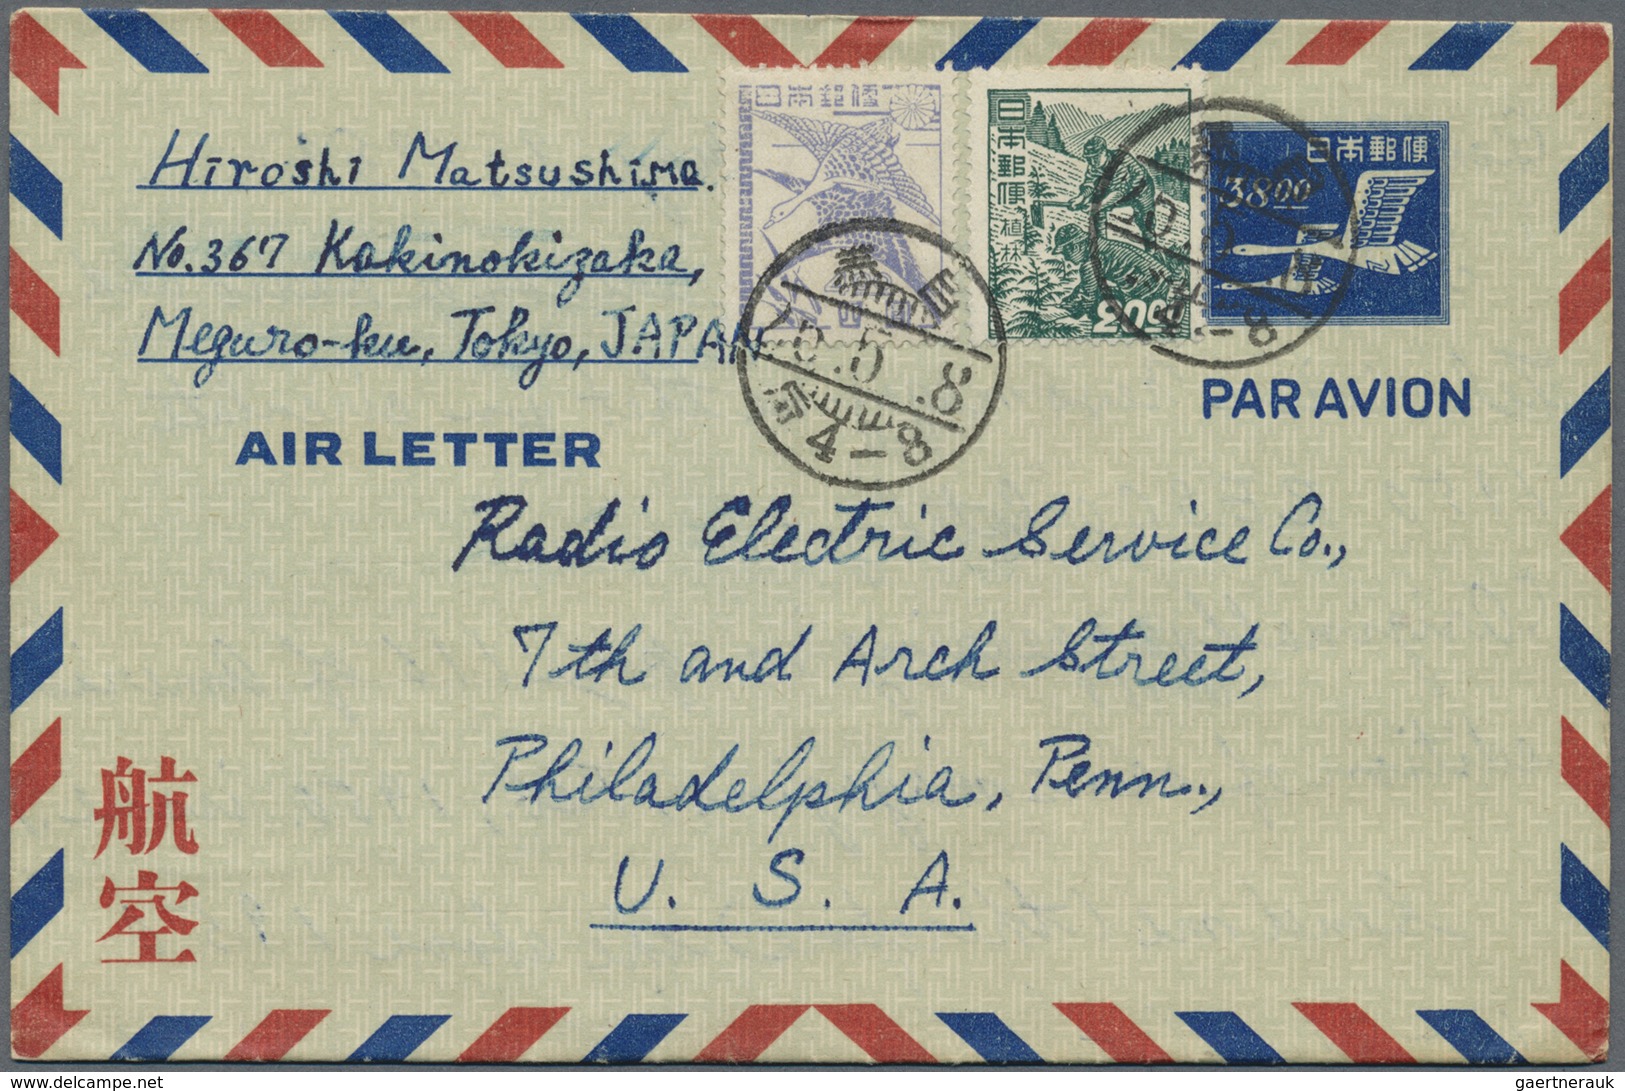 日本郵便
日本郵便
植林
20.00
日本郵便
38.00
Hiroshi Matsushima.
No. 367 Kakinokizaka,
Meguro-ku, Tokyo, JAPAN
目黒
25.5.8
后4-8
目黒
25.5.8
4-8
PAR AVION
AIR LETTER
Radio Electric Service Co.,
7th and Arch Street,
Philadelphia, Penn.,
U. S. A.
航空
www.delcampe.net
gaertnerauk